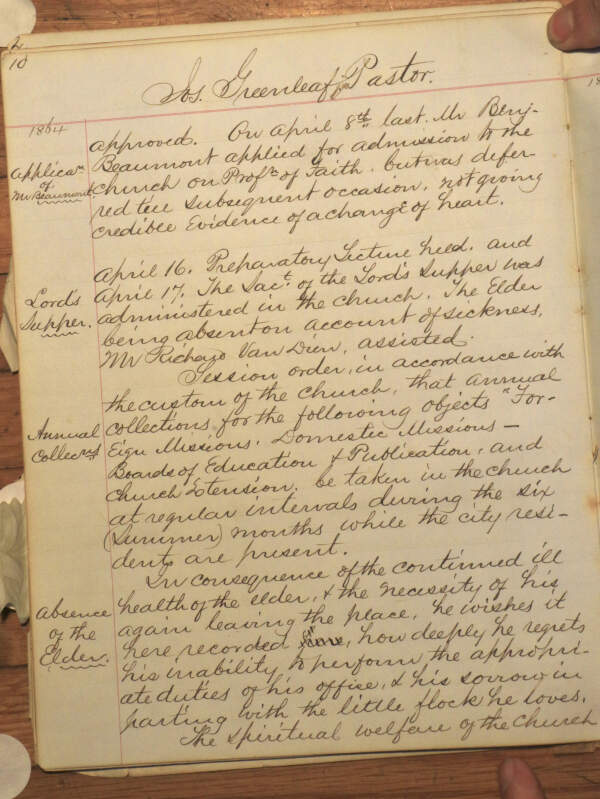 2
10
Jos. Greenleaf Jr Pastor.
1864
approved. On April 8th last. Mr Benj-
Applicatn
of
Mr Beaumont.
Beaumont applied for admission to the
church on Profn of Faith. but was defer-
red till subsequent occasion, not giving
credible Evidence of a change of heart.
April 16. Preparatory Lecture held. and
Lord's
Supper.
April 17. The Sact. of the Lord's Supper was
administered in the church. The Elder
being absent on account of sickness,
Mr Richard Van Dien, assisted.
Session order, in accordance with
the custom of the church, that annual
Annual
Collecns
collections for the following objects "For-
eign Missions. Domestic Missions—
Boards of Education & Publication, and
Church Extension. be taken in the church
at regular intervals during the six
(Summer) months while the city resi-
dents are present.
In consequence of the continued ill
Absence
of the
Elder.
health of the elder, & the necessity of his
again leaving the place, he wishes it
here recorded, how deeply he regrets
his inability to perform the appropri-
ate duties of his office, & his sorrow in
parting with the little flock he loves.
The spiritual welfare of the church